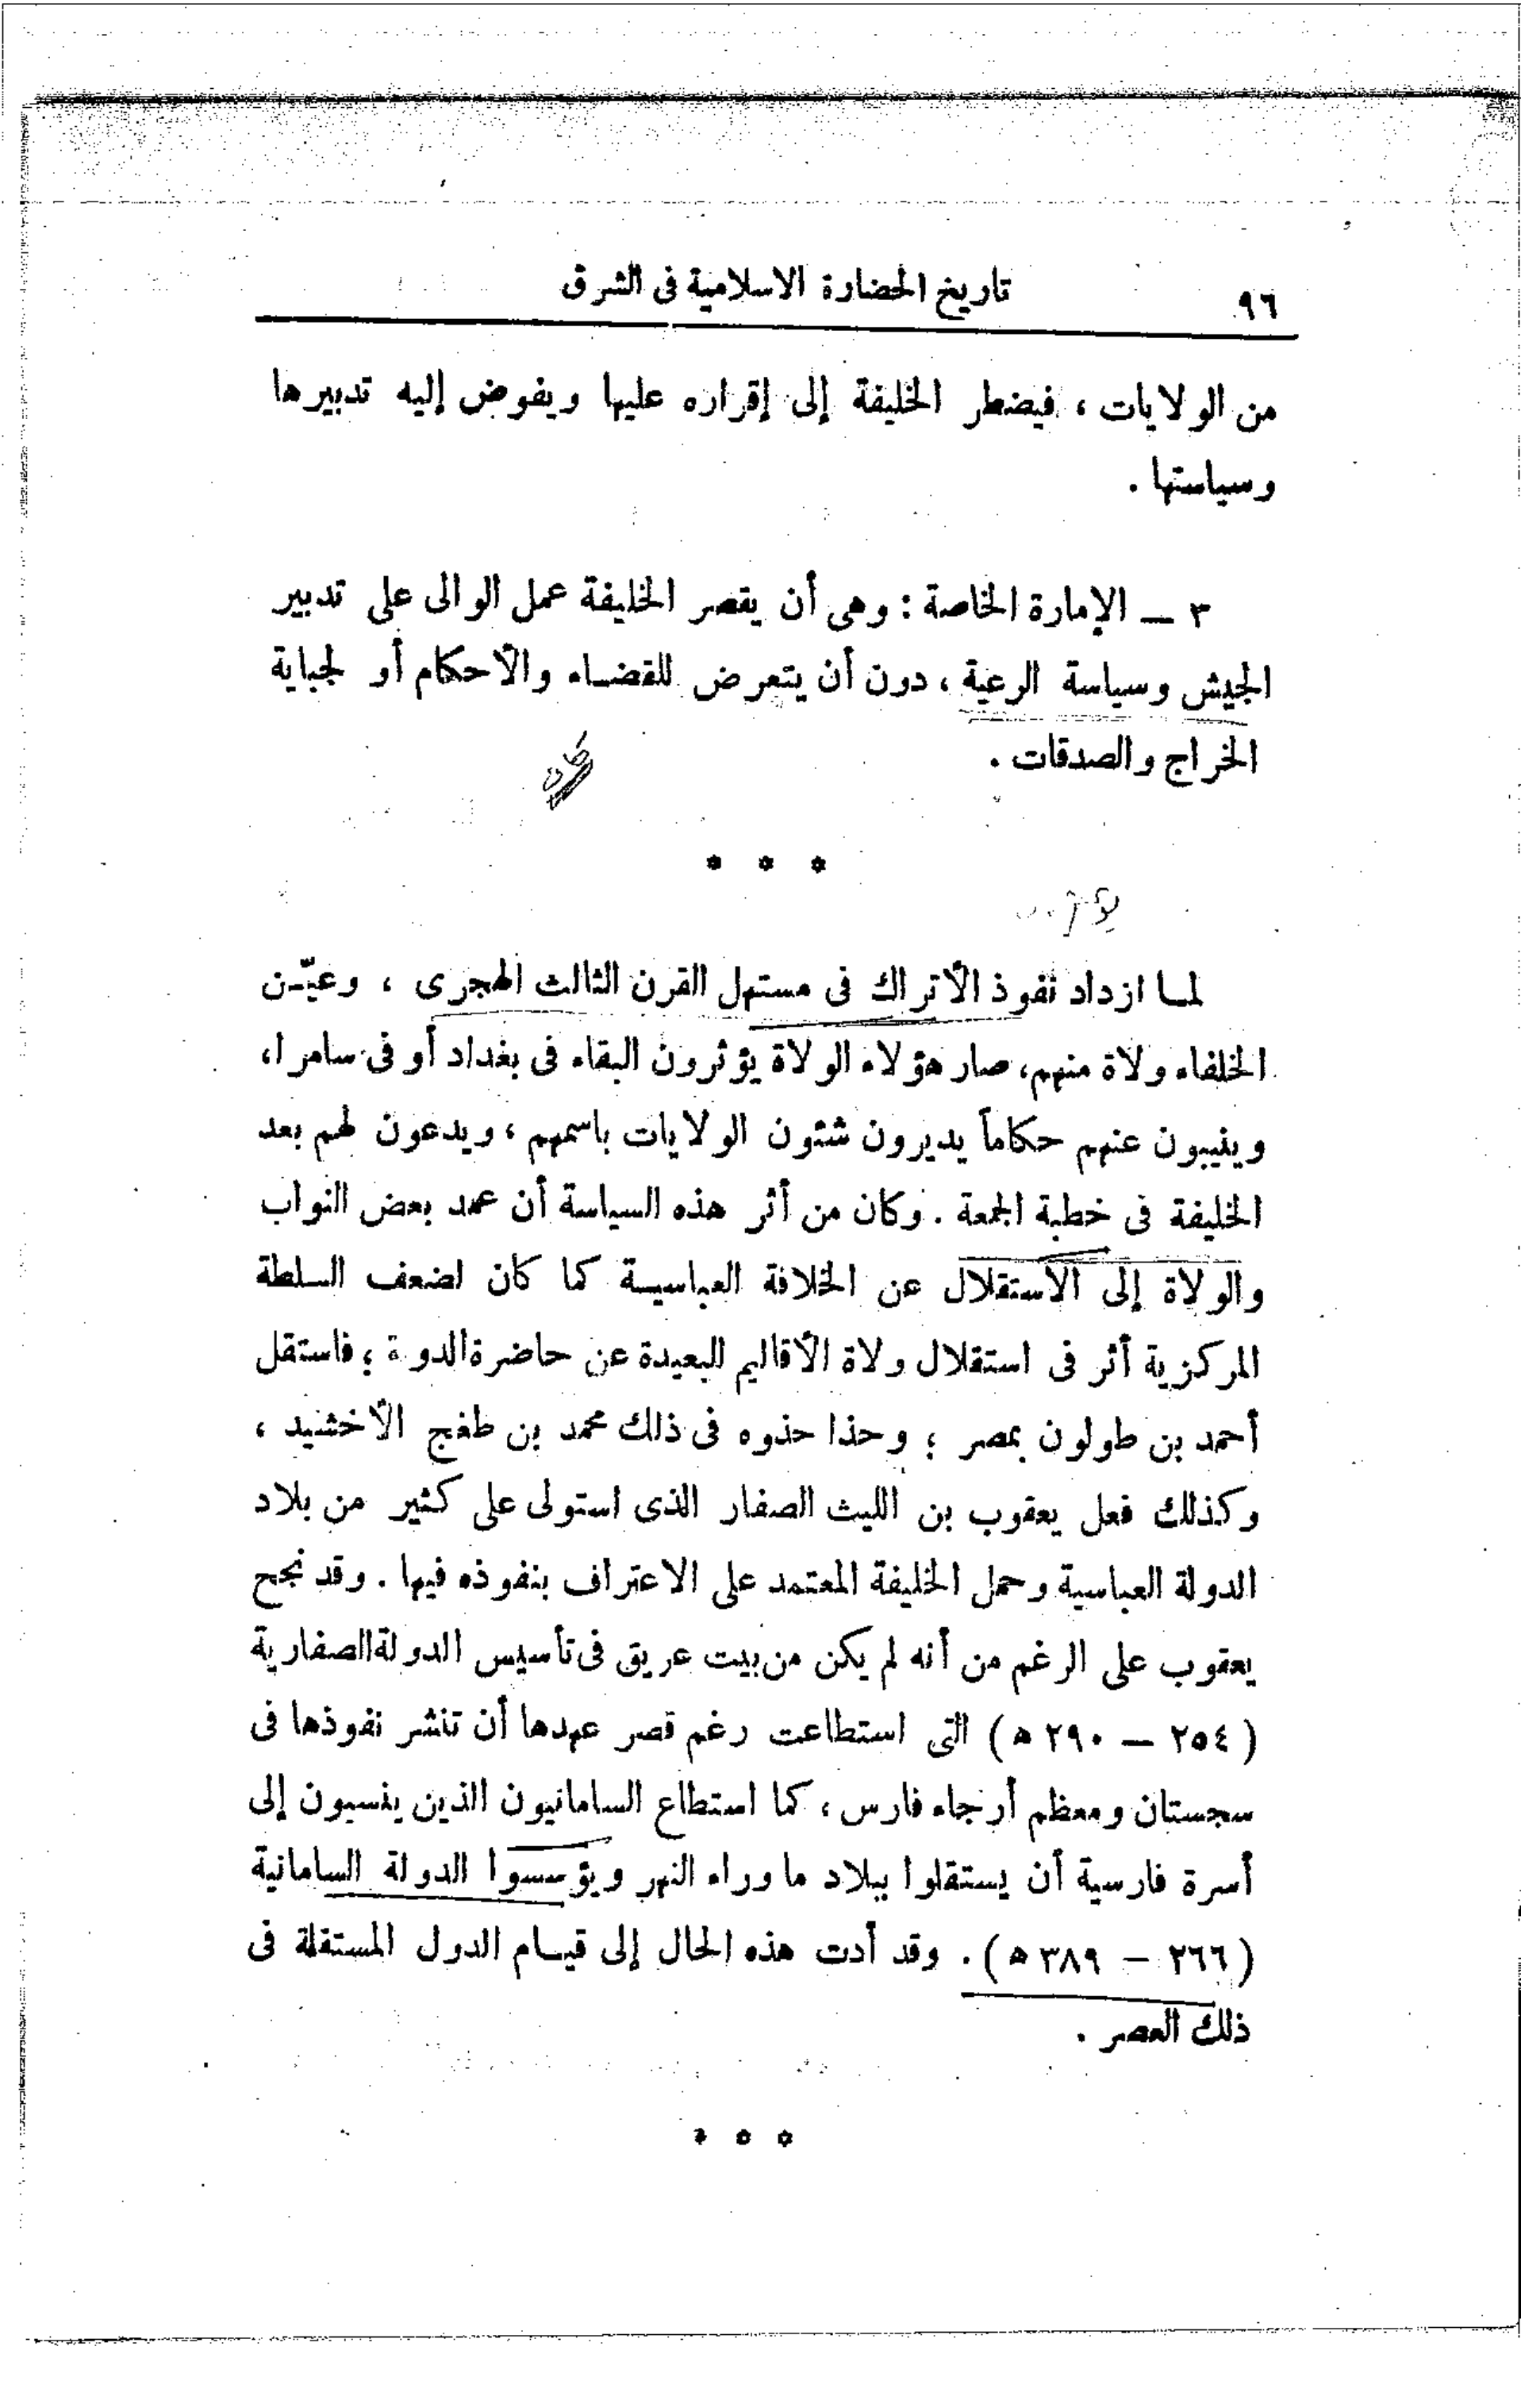 ٩٦ تاريخ الحضارة الاسلامية فى الشرق
من الولايات ، فيضطر الخليفة إلى إقراره عليها ويفوض إليه تدبيرها
وسياستها .
٣ — الإمارة الخاصة : وهى أن يقصر الخليفة عمل الوالى على تدبير
الجيش وسياسة الرعية ، دون أن يتعرض للقضاء والأحكام أو لجباية
الخراج والصدقات .
* * *
لما ازداد نفوذ الأتراك فى مستهل القرن الثالث الهجرى ، وعيّن
الخلفاء ولاة منهم، صار هؤلاء الولاة يؤثرون البقاء فى بغداد أو فى سامرا،
وينيبون عنهم حكاماً يديرون شئون الولايات باسمهم ، ويدعون لهم بعد
الخليفة فى خطبة الجمعة . وكان من أثر هذه السياسة أن عمد بعض النواب
والولاة إلى الاستقلال عن الخلافة العباسية كما كان لضعف السلطة
المركزية أثر فى استقلال ولاة الأقاليم البعيدة عن حاضرة الدولة ؛ فاستقل
أحمد بن طولون بمصر ؛ وحذا حذوه فى ذلك محمد بن طغج الأخشيد ،
وكذلك فعل يعقوب بن الليث الصفار الذى استولى على كثير من بلاد
الدولة العباسية وحمل الخليفة المعتمد على الاعتراف بنفوذه فيها . وقد نجح
يعقوب على الرغم من أنه لم يكن من بيت عريق فى تأسيس الدولة الصفارية
( ٢٥٤ — ٢٩٠ ﻫ ) التى استطاعت رغم قصر عهدها أن تنشر نفوذها فى
سجستان ومعظم أرجاء فارس ، كما استطاع السامانيون الذين ينسبون إلى
أسرة فارسية أن يستقلوا ببلاد ما وراء النهر ويؤسسوا الدولة السامانية
( ٢٦٦ — ٣٨٩ ﻫ ) . وقد أدت هذه الحال إلى قيام الدول المستقلة فى
ذلك العصر .
* * *